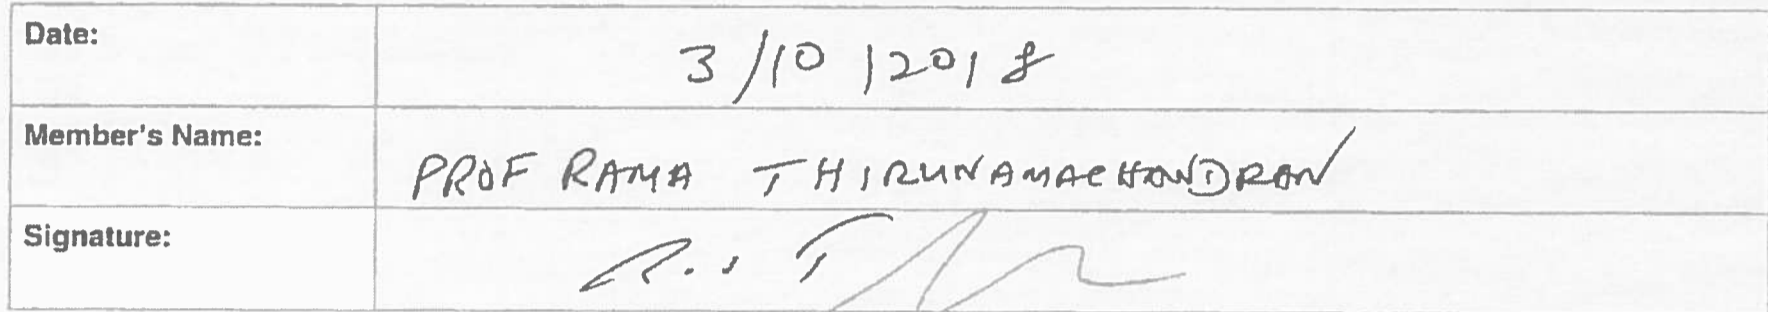 Date: 3/10/2018
Member's Name: PROF RAMA THIRUNAMACHANDRAN
Signature: